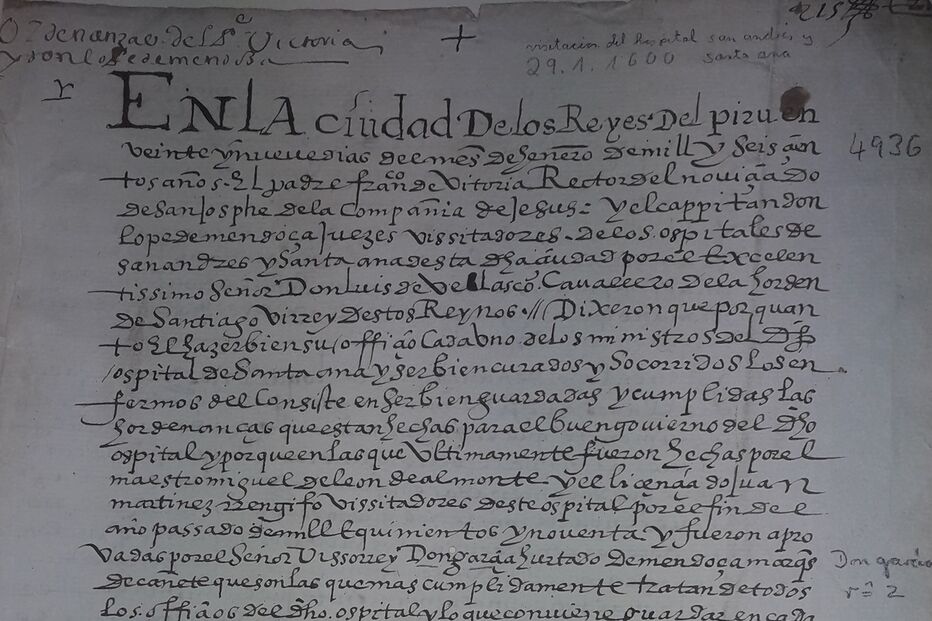 Ordenanzas del Pe Victoria
y Don Lope de mendosa
+
visitacion del hospital san andres y
29.1.1600 santa ana
EN LA ciudad De los Reyes Del piru en
veinte y nueve dias de el mes de henero De mill y seis çien
tos años. El padre franco de Vitoria Rector del noviçiado
de san Josphe de la Compañia de Jesus: y el cappitan don
lope de mendoça Juezes vissitadores. de los ospitales de
san andres y Santa ana desta dha ciudad por el Excelen
tissimo Señor Don Luis de Vellasco. Cavallero de la horden
de Santiago Virrey Destos Reynos. // Dixeron que por quan
to El hazer bien su offiçio Cada Uno de los ministros del Dho
ospital de Santa ana y ser bien curados y Socorridos los en
fermos del Consiste en ser bien guardadas y cumplidas las
hordenanças que estan hechas para el buen govierno del dho
ospital y porque en las que Ultimamente fueron hechas por el
maestro miguel de leon de almonte y el liçençiado Juan
martinez rrengifo vissitadores deste ospital por el fin de el
año passado de mill E quinientos y noventa: y fueron apro
vadas por el Señor Vissorrey Don garçia hurtado de mendoça marqs
de canete que son las que mas cumplidamente tratan de todos
los offiçios del dho. ospital y lo que conviene guardar en cada
4936
Don garcia
2